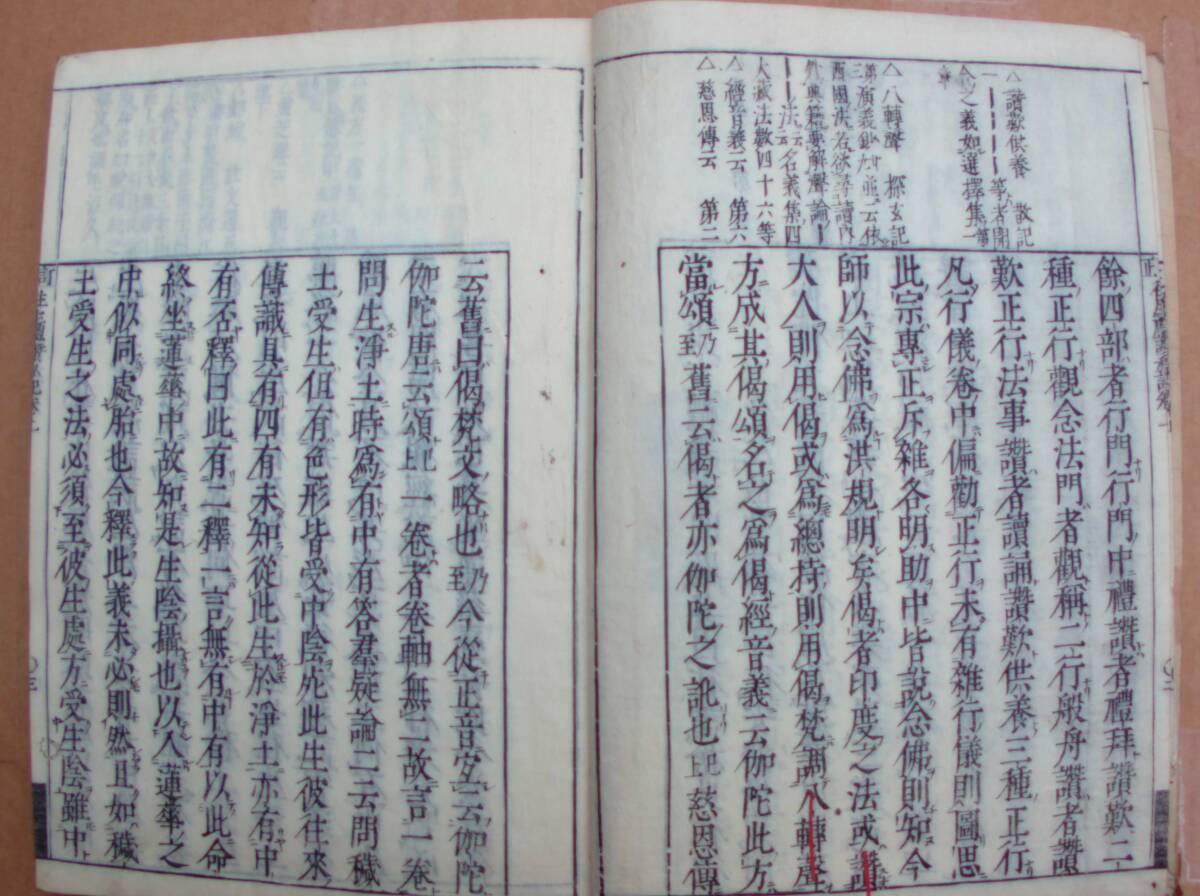 △讃歎供養 散記
一ーーーー等者開
合之義如選擇集二
△八轉聲 探玄記
西國法名欲尋讀内
外典籍要解聲論ー
ーー法云名義集四
大藏法數四十六等
△經音義云 第六
△慈恩傳云 第二
餘四部者行門行門中禮讚者禮拜讚歎二
種正行觀念法門者觀稱二行般舟讚者讚
歎正行法事讚者讀誦讚歎供養三種正行
凡行儀卷中偏勸正行未有雜行儀則圖思
此宗專正斥雜各明助中皆說念佛則知今
師以念佛爲洪規明矣偈者印度之法或讚
大人則用偈或爲總持則用偈梵調八轉聲
方成其偈頌名之爲偈經音義云伽陀此方
當頌乃至舊云偈者亦伽陀之訛也上已慈恩傳
云舊曰偈梵文略也乃至今從正音宜云伽陀
伽陀唐云頌上已一卷者卷軸無二故言一卷
問生淨土時爲有中有答羣疑論二云問穢
土受生但有色形皆受中陰死此生彼往來
傳識具有四有未知從此生於淨土亦有中
有否釋曰此有二釋一言無有中有以此命
終坐蓮華中故知是生陰攝也以入蓮華之
中似同處胎也今釋此義未必則然且如穢
土受生之法必須至彼生處方受生陰雖中